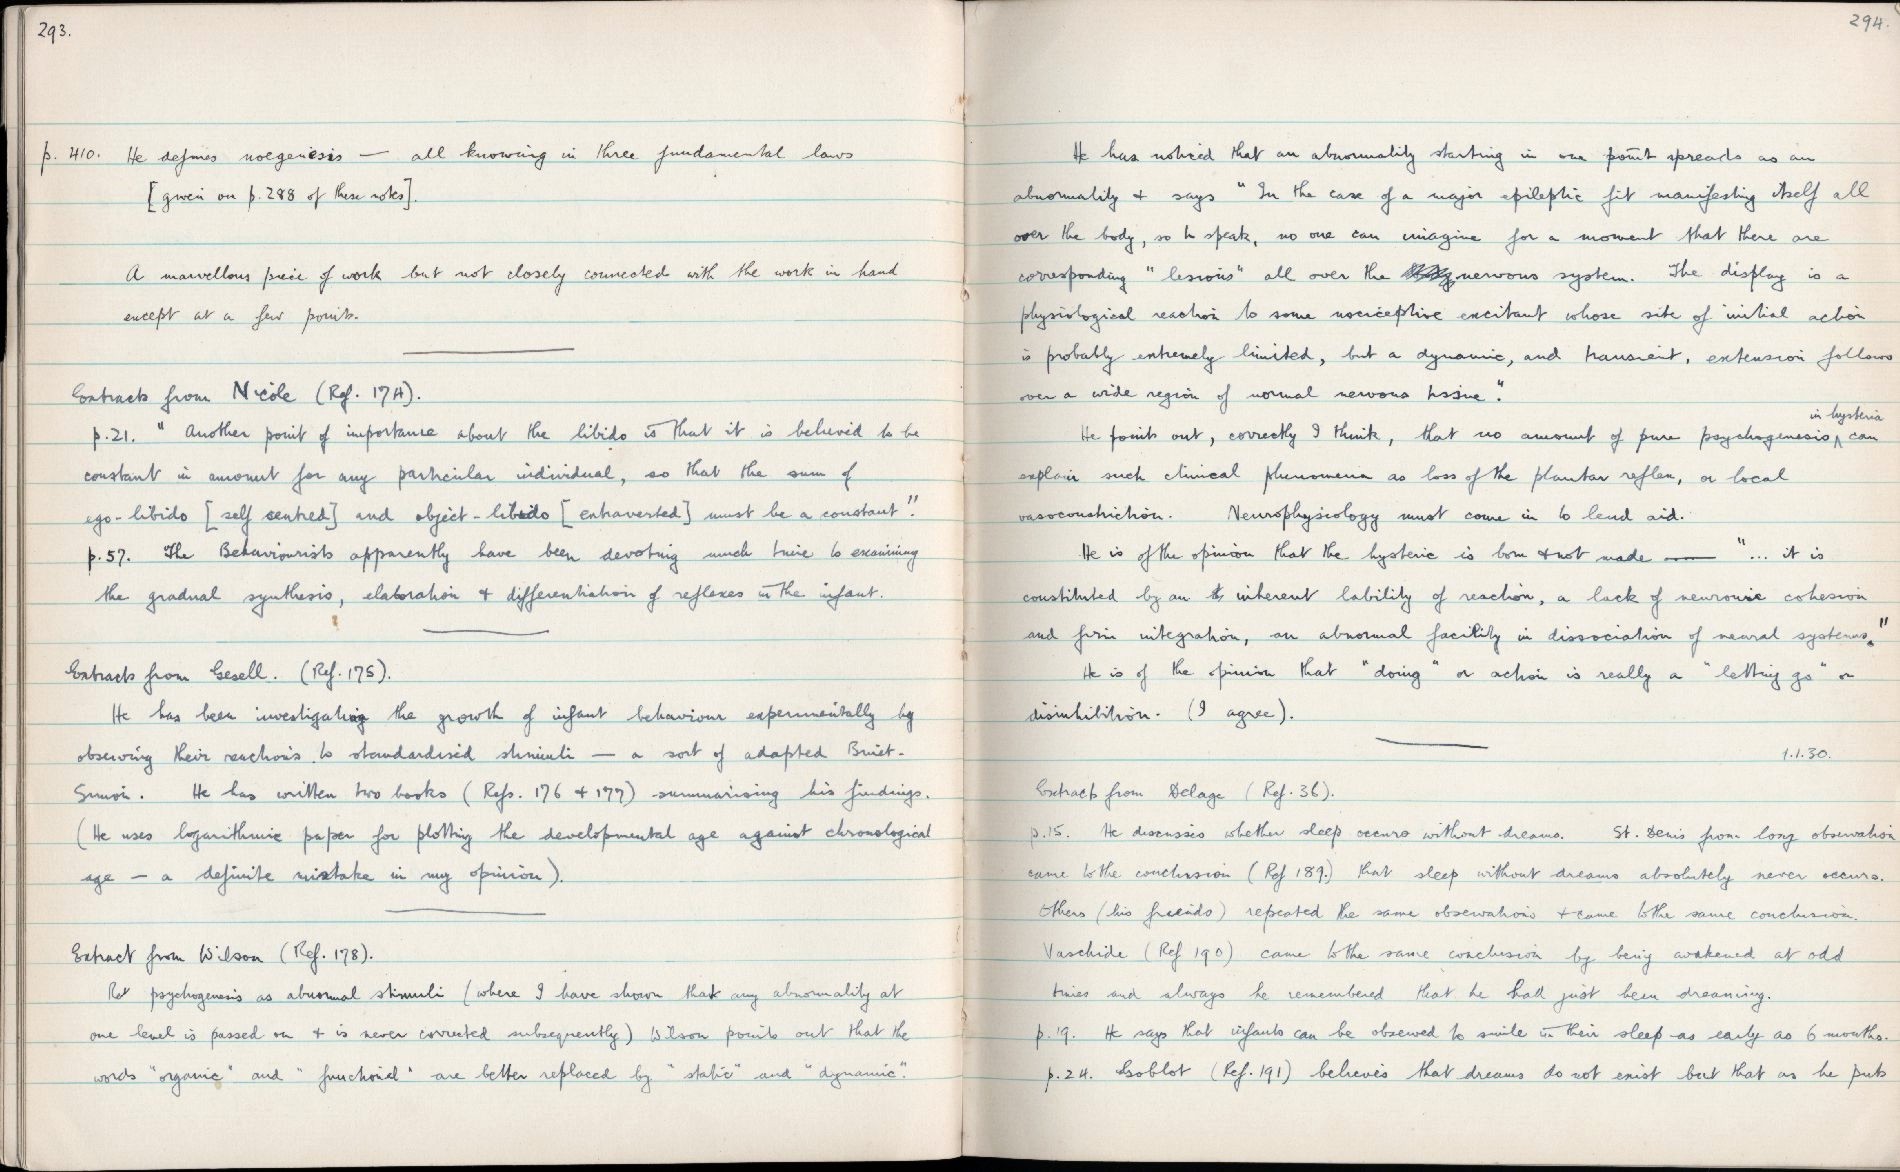 293.
p. 410. He defines noegenesis — all knowing in three fundamental laws
[given on p. 288 of these notes].
A marvellous piece of work but not closely connected with the work in hand
except at a few points.
Extracts from Nicole (Ref. 174).
p. 21. " Another point of importance about the libido is that it is believed to be
constant in amount for any particular individual, so that the sum of
ego-libido [self centred] and object-libido [extraverted] must be a constant".
p. 57. The Behaviourists apparently have been devoting much time to examining
the gradual synthesis, elaboration & differentiation of reflexes in the infant.
Extracts from Gesell. (Ref. 175).
He has been investigating the growth of infant behaviour experimentally by
observing their reactions to standardised stimuli — a sort of adapted Binet-
Simon. He has written two books (Refs. 176 & 177) summarising his findings.
(He uses logarithmic paper for plotting the developmental age against chronological
age — a definite mistake in my opinion).
Extract from Wilson (Ref. 178).
Ref psychogenesis as abnormal stimuli (where I have shown that any abnormality at
one level is passed on & is never corrected subsequently) Wilson points out that the
words "organic" and "functional" are better replaced by "static" and "dynamic".
294.
He has noticed that an abnormality starting in one point spreads as an
abnormality & says " In the case of a major epileptic fit manifesting itself all
over the body, so to speak, no one can imagine for a moment that there are
corresponding "lesions" all over the nervous system. The display is a
physiological reaction to some nociceptive excitant whose site of initial action
is probably extremely limited, but a dynamic, and transient, extension follows
over a wide region of normal nervous tissue".
He points out, correctly I think, that no amount of pure psychogenesis in hysteria can
explain such clinical phenomena as loss of the plantar reflex, or local
vasoconstriction. Neurophysiology must come in to lend aid.
He is of the opinion that the hysteric is born & not made — "... it is
constituted by an inherent lability of reaction, a lack of neuronic cohesion
and firm integration, an abnormal facility in dissociation of neural systems."
He is of the opinion that "doing" or action is really a "letting go" or
disinhibition. (I agree).
1.1.30.
Extracts from Delage (Ref. 36).
p. 15. He discusses whether sleep occurs without dreams. St. Denis from long observation
came to the conclusion (Ref 189.) that sleep without dreams absolutely never occurs.
Others (his friends) repeated the same observations & came to the same conclusion.
Vaschide (Ref 190) came to the same conclusion by being awakened at odd
times and always he remembered that he had just been dreaming.
p. 19. He says that infants can be observed to smile in their sleep as early as 6 months.
p. 24. Goblot (Ref. 191) believes that dreams do not exist but that as he puts